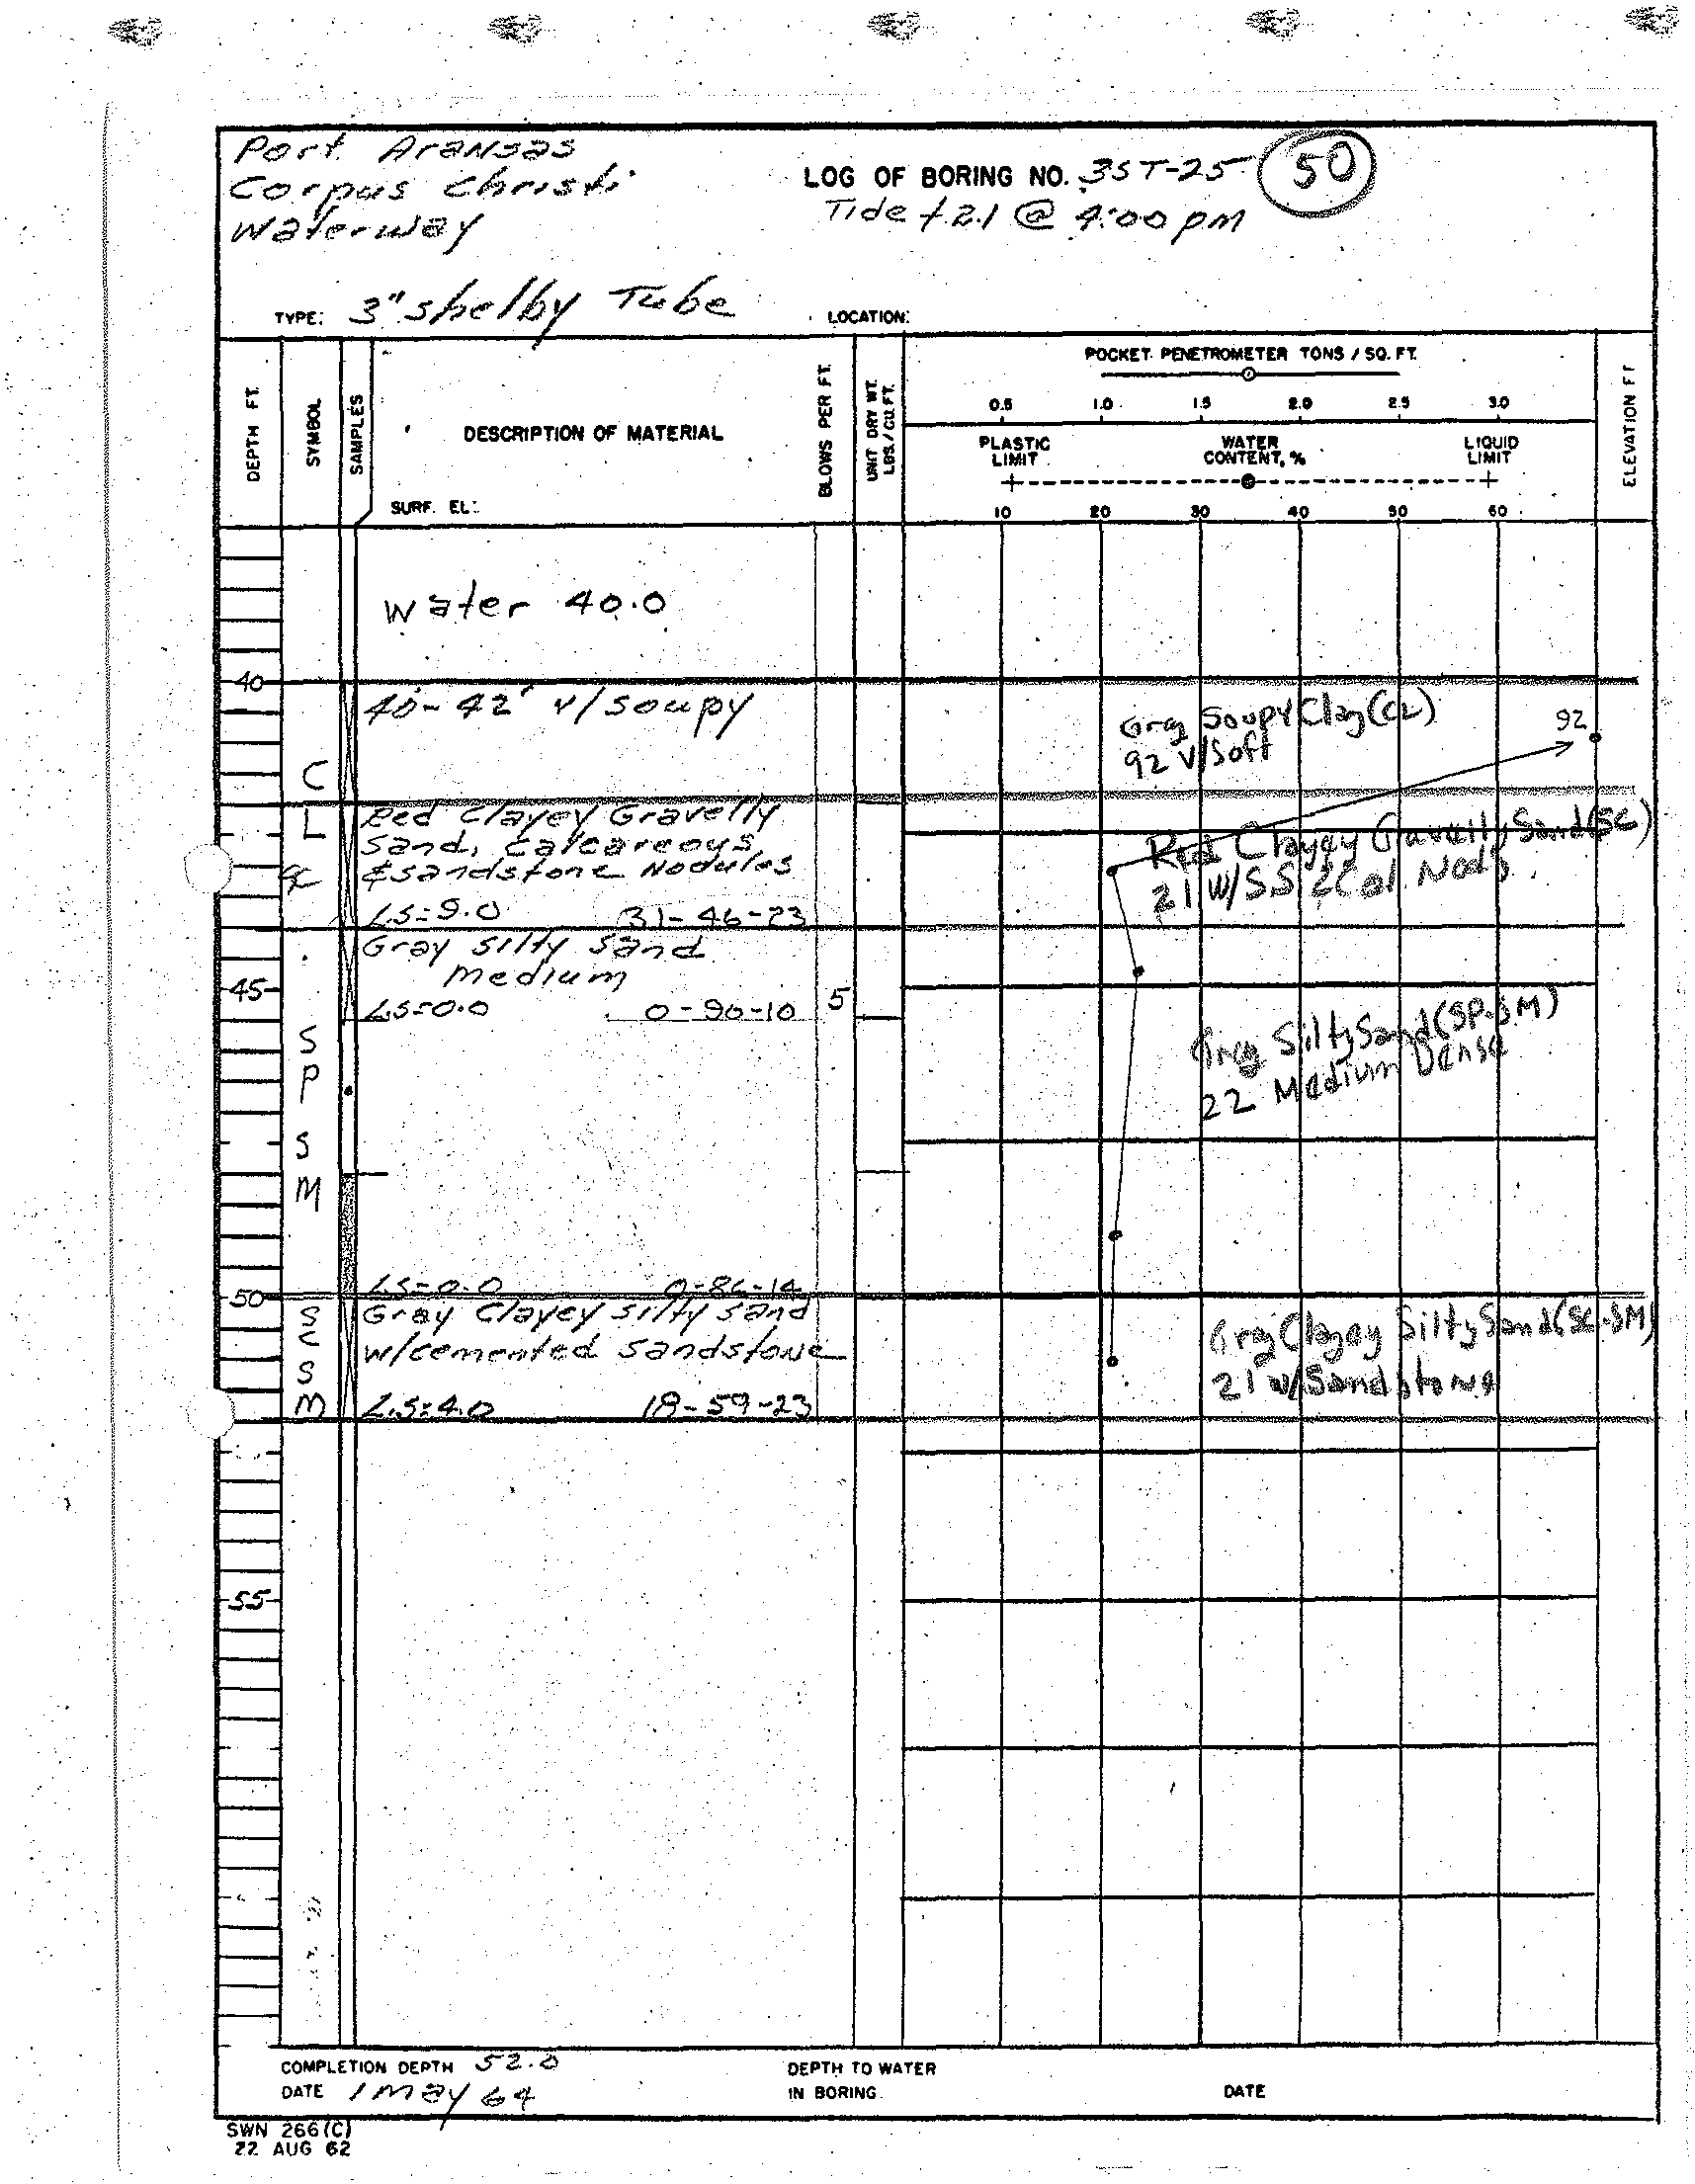 Port Aransas
Corpus Christi
Waterway
LOG OF BORING NO. 3ST-25 50
Tide +2.1 @ 4:00 pm
TYPE: 3" shelby Tube
LOCATION:
DEPTH FT.
SYMBOL
SAMPLES
DESCRIPTION OF MATERIAL
SURF. EL:
BLOWS PER FT.
UNIT DRY WT.
LBS./CU. FT.
POCKET PENETROMETER TONS / SQ. FT.
0.5 1.0 1.5 2.0 2.5 3.0
PLASTIC LIMIT
WATER CONTENT, %
LIQUID LIMIT
10 20 30 40 50 60
ELEVATION FT
water 40.0
40
40-42' v/soupy
Gray Soupy Clay (CL)
92 v/Soft
92
C
L
Red Clayey Gravelly
Sand, Calcareous
& sandstone Nodules
LS=9.0 31-46-23
Red Clayey Gravelly Sand (SC)
21 W/SS & Cal. Nods.
Gray silty sand
medium
45
LS=0.0 0-90-10 5
S
P
S
M
Gray Silty Sand (SP-SM)
22 Medium Dense
LS=0.0 0-86-14
50
S
C
S
M
Gray Clayey silty sand
w/cemented sandstone
LS=4.0 18-59-23
Gray Clayey Silty Sand (SC-SM)
21 w/Sandstone
55
COMPLETION DEPTH 52.0
DATE 1 May 64
DEPTH TO WATER
IN BORING
DATE
SWN 266(C)
22 AUG 62